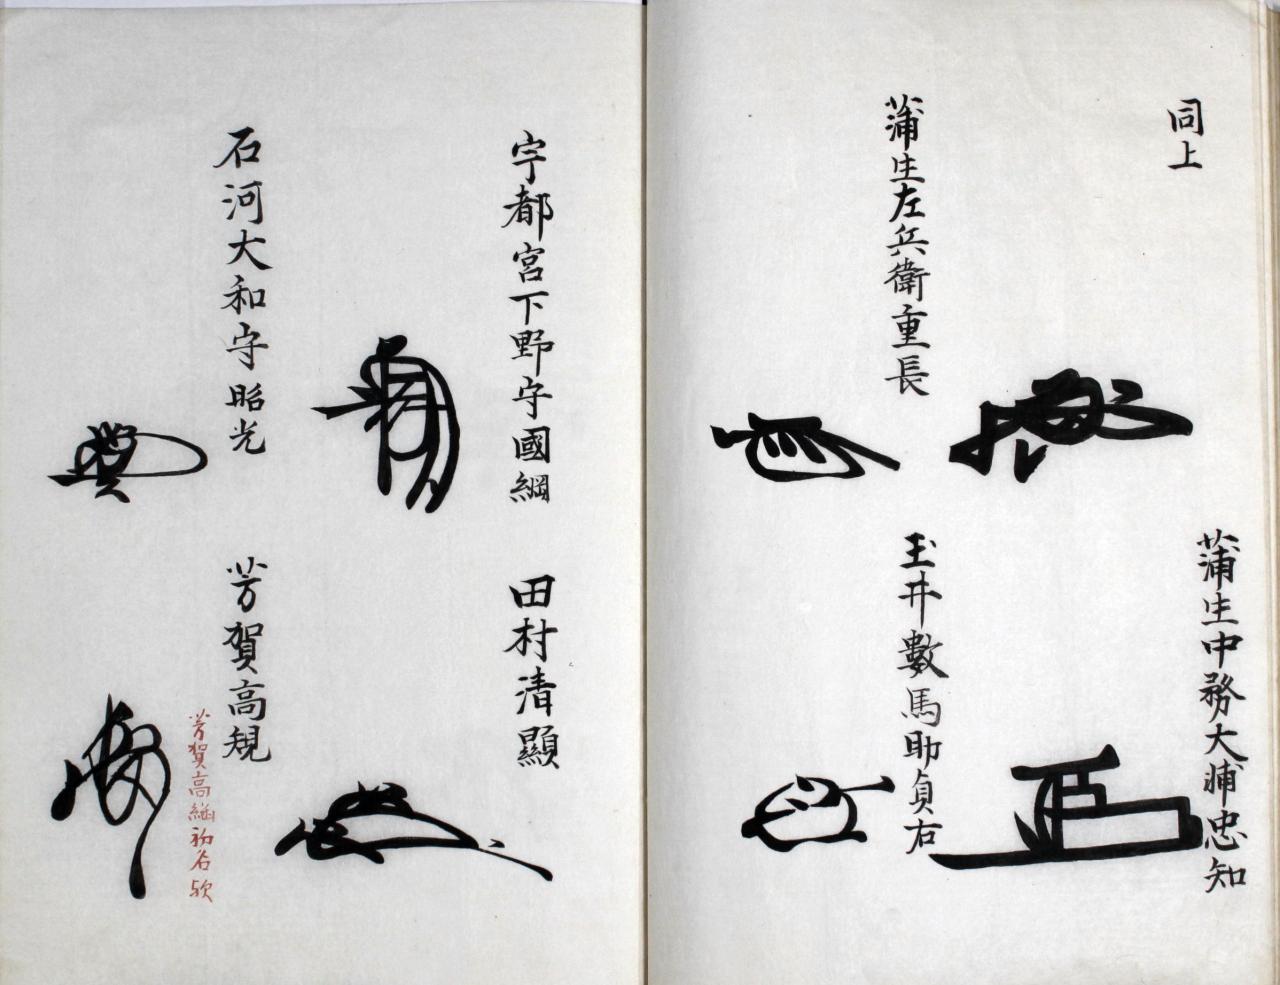 同上
蒲生中務大輔忠知
蒲生左兵衛重長
玉井數馬助貞右
宇都宮下野守國綱
田村清顯
石河大和守昭光
芳賀高規
芳賀高継初名欤